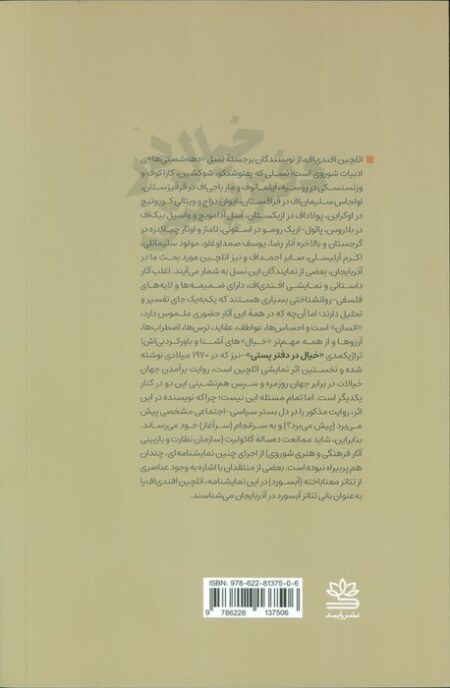 ائلچین افندی‌اف، از نویسندگان برجستهٔ نسل «دهه‌شصتی‌ها»ی
ادبیات شوروی است؛ نسلی که یفتوشنکو، شوکشین، کازاکوف و
وزنسنسکی در روسیه، ایتماتوف و مار بایجی‌اف در قرقیزستان،
اولجاس سلیمان‌اف در قزاقستان، ایوان دراچ و ویتالی کورونیچ
در اوکراین، پولاداف در ازبکستان، آلس آدامویچ و واسیل بیک‌اف
در بلاروس، پائول-اریک رومو در استونی، تاماز و اوتار چیلادزه در
گرجستان و بالاخره آنار رضا، یوسف صمداوغلو، مولود سلیمانلی،
اکرم آیلیسلی، صابر احمداف و نیز ائلچین مورد بحث ما در
آذربایجان، بعضی از نمایندگان این نسل به شمار می‌آیند. اغلب آثار
داستانی و نمایشی افندی‌اف، دارای ضمیمه‌ها و لایه‌های
فلسفی-روانشناختی بسیاری هستند که یک‌به‌یک جای تفسیر و
تحلیل دارند؛ اما آن‌چه که در همهٔ این آثار حضوری ملموس دارد،
«انسان» است و احساس‌ها، عواطف، عقاید، ترس‌ها، اضطراب‌ها،
آرزوها و از همه مهم‌تر «خیال»های آشنا و باورکردنی‌اش!
تراژیکمدی «خیال در دفتر پستی»-نیز که در ۱۹۷۰ میلادی نوشته
شده و نخستین اثر نمایشی ائلچین است، روایت برآمدن جهان
خیالات در برابر جهان روزمره و سپس هم‌نشینی این دو در کنار
یکدیگر است. اما تمام مسئله این نیست؛ چراکه نویسنده در این
اثر، روایت مذکور را در دل بستر سیاسی-اجتماعی مشخصی پیش
می‌برد (پیش می‌برد؟) و به سرانجام (سرآغاز) خود می‌رساند.
بنابراین، شاید ممانعت ده‌سالهٔ گلاولیت (سازمان نظارت و بازبینی
آثار فرهنگی و هنری شوروی) از اجرای چنین نمایشنامه‌ای، چندان
هم پربیراه نبوده است. بعضی از منتقدان با اشاره به وجود عناصری
از تئاتر معناباخته (آبسورد) در این نمایشنامه، ائلچین افندی‌اف را
به‌عنوان بانی تئاتر آبسورد در آذربایجان می‌شناسند.
ISBN: 978-622-81375-0-6
9 786228 137506
نشر رایبد